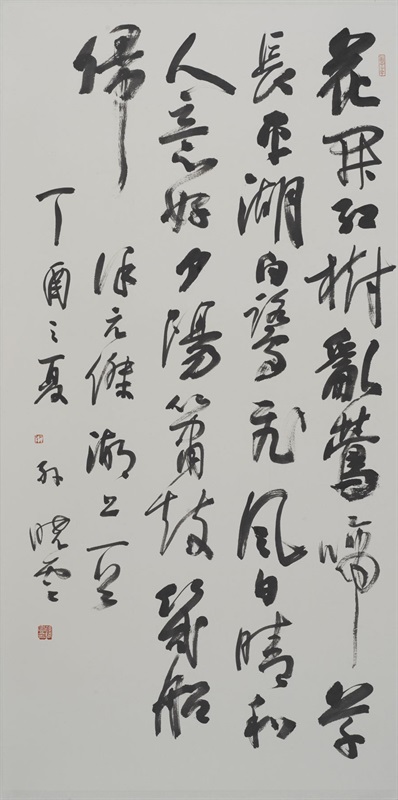 花開紅樹亂鶯啼草
長平湖白鷺飛風日晴和
人意好夕陽簫鼓幾船
歸
徐元傑湖上一首
丁酉之夏孫曉雲